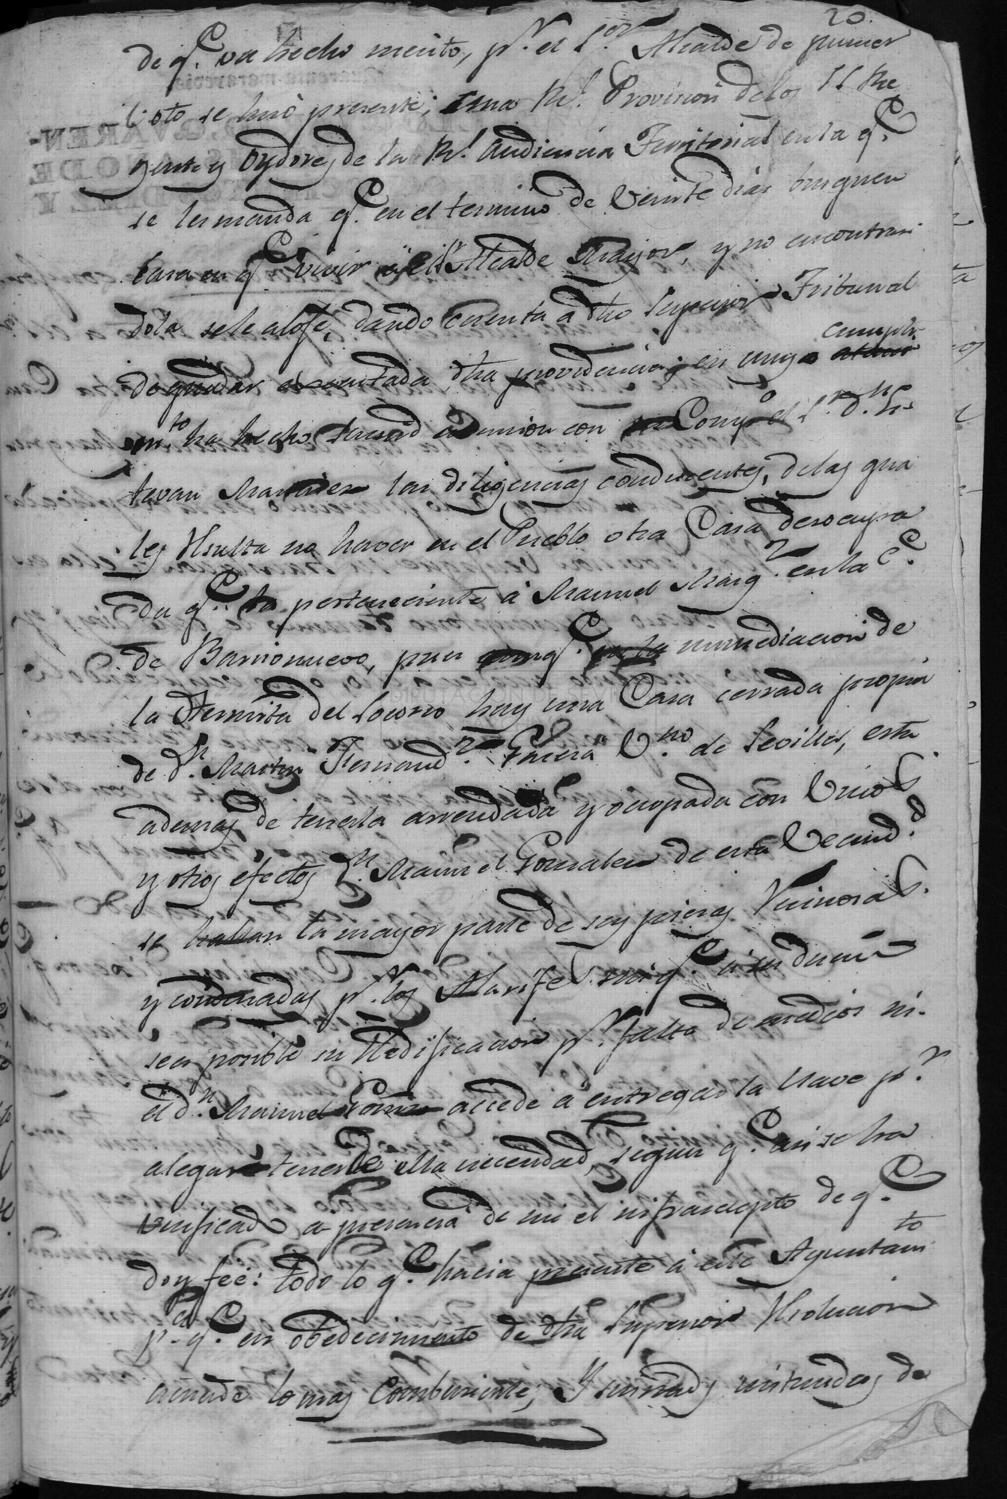 20.
de q.e va hecho merito, p.r el S.or Alcalde de primer
Voto se hizo presente; una R.l Provision de los SS Re
gente y Oydores de la R.l Audiencia Territorial en la q.e
se les manda q.e en el termino de Veinte dias busquen
Casa en q.e vivir el Alcalde Mayor, y no encontran
dola se le aloje, dando cuenta a dho Superior Tribunal
de quedar executada dha providencia; en cuyo cumpli-
m.to ha hecho su md en union con su Comp.o el S.r D.n Es
tevan Martinez las diligencias conducentes, de las qua
les resulta no haver en el Pueblo otra Casa desocupa
da q.e la perteneciente á Manuel Marq.z en la C.e
de Barrionuevo, pues aunq.e en la inmediacion de
la Hermita del Socorro hay una Casa cerrada propia
de D.n Martin Fernand.z V.no de Sevilla, esta
ademas de tenerla arrendada y ocupada con
y otros efectos D.n Manuel Gonzales de esta Vecind.d
se hallan la mayor parte de sus piezas Ruinosas
y condenadas p.r los Alarifes, sin q.e a su dueño
sea posible su Redificacion p.r falta de medios ni
el D.n Manuel accede á entregar la llave p.r
alegar tener de ella necesidad, segun q.e asi se ha
verificado a presencia de mi el infraescripto de q.e
doy feé: todo lo q.e hacia presente á este Ayuntam.to
p.a q.e en obedecimiento de dha Superior Resolucion
acuerde lo mas Combeniente, Y sus mrds entendidos de